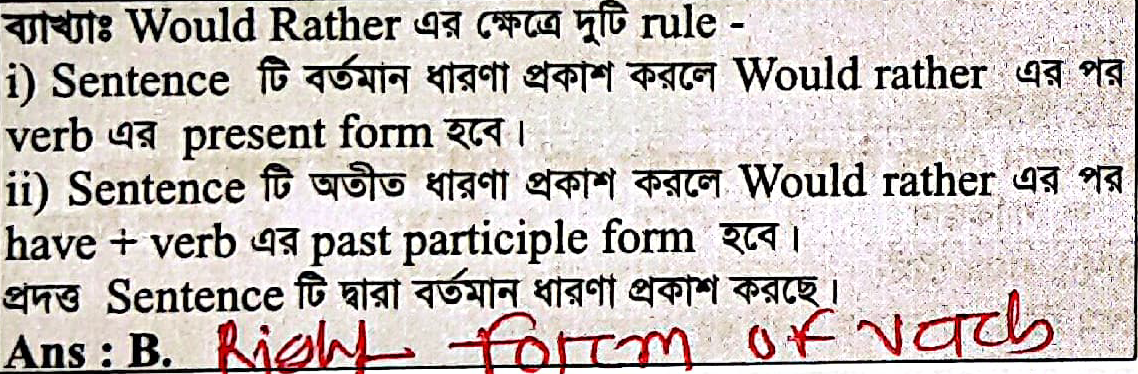 ব্যাখ্যাঃ Would Rather এর ক্ষেত্রে দুটি rule -
i) Sentence টি বর্তমান ধারণা প্রকাশ করলে Would rather এর পর
verb এর present form হবে।
ii) Sentence টি অতীত ধারণা প্রকাশ করলে Would rather এর পর
have + verb এর past participle form হবে।
প্রদত্ত Sentence টি দ্বারা বর্তমান ধারণা প্রকাশ করছে।
Ans : B. Right form of verb